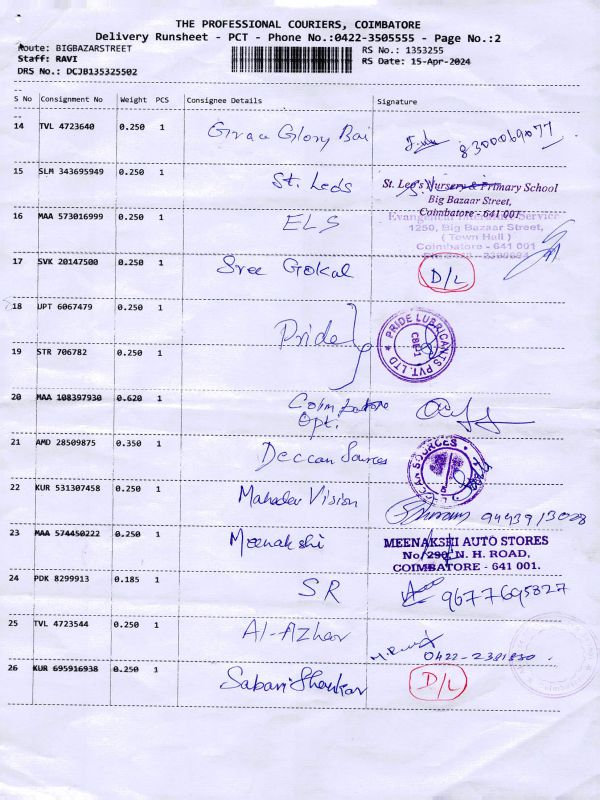 THE PROFESSIONAL COURIERS, COIMBATORE
Delivery Runsheet - PCT - Phone No.:0422-3505555 - Page No.:2
Route: BIGBAZARSTREET RS No.: 1353255
Staff: RAVI RS Date: 15-Apr-2024
DRS No.: DCJB135325502
S No Consignment No Weight PCS Consignee Details Signature
14 TVL 4723640 0.250 1 Grace Glory Bai 8300069077
15 SLM 343695949 0.250 1 St. Leos St. Leo's Nursery & Primary School
Big Bazaar Street,
Coimbatore - 641 001
16 MAA 573016999 0.250 1 ELS Evangelical Literature Service
1250, Big Bazaar Street,
( Town Hall )
Coimbatore - 641 001
17 SVK 20147500 0.250 1 Sree Gokal D/L
18 UPT 6067479 0.250 1 Pride PRIDE LUBRICANTS PVT. LTD
CBE-1
19 STR 706782 0.250 1
20 MAA 108397930 0.620 1 Coimbatore
Opti.
21 AMD 28509875 0.350 1 Deccan Sources SOURCES
22 KUR 531307458 0.250 1 Mahadev Vision
23 MAA 574450222 0.250 1 Meenakshi MEENAKSHI AUTO STORES
No. 290, N. H. ROAD,
COIMBATORE - 641 001.
24 PDK 8299913 0.185 1 SR 9677695827
25 TVL 4723544 0.250 1 Al-Azhar 0422-2381830
26 KUR 695916938 0.250 1 Sabari Shankar D/L